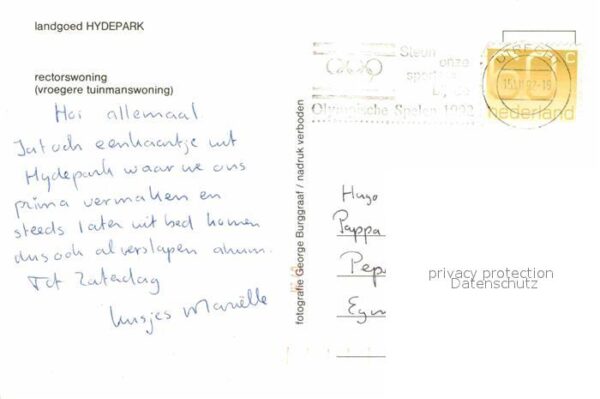 landgoed HYDEPARK
rectorswoning
(vroegere tuinmanswoning)
Hoi allemaal.
Jatoch eenkaartje uit
Hydepark waar we ons
prima vermaken en
steeds later uit bed komen
dus ook al verslapen ahum.
Tot Zaterdag
kusjes Mariëlle
fotografie George Burggraaf / nadruk verboden
Steun
onze
Olympische Spelen 1992
UTRECHT
60 c
nederland
Hugo
Pappa
Pep
privacy protection
Datenschutz